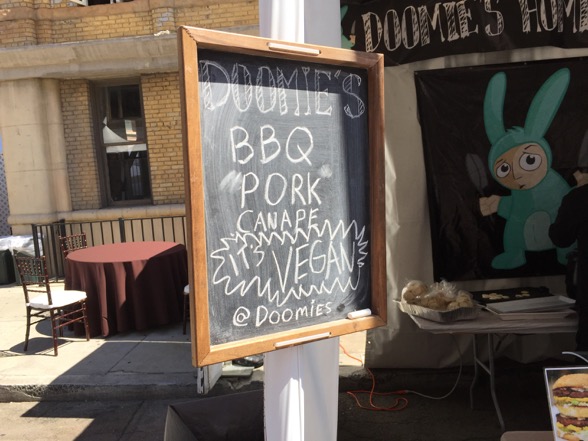 DOOMIE'S
BBQ
PORK
CANAPE
IT'S VEGAN
@DOOMIES
DOOMIE'S HOME